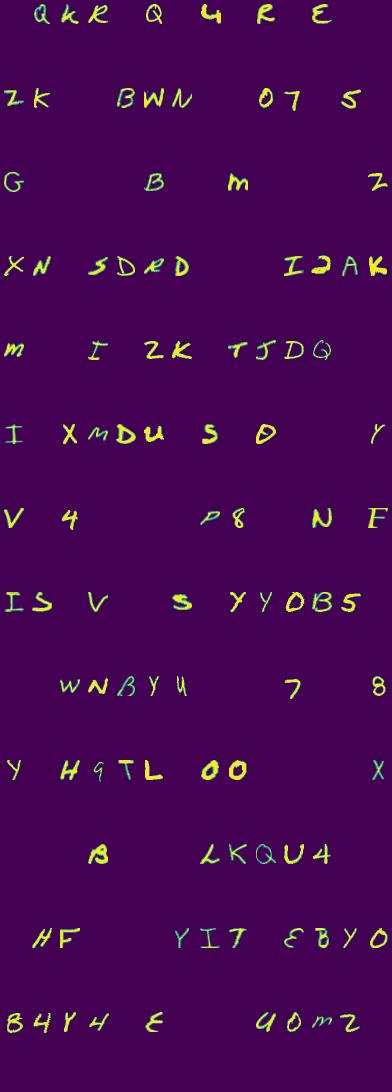 QKR Q 4 R E
ZK BWN 07 5
G B M 2
XN SDRD I2AK
M I ZK TJDQ
I XMDU S 0 Y
V 4 P8 N F
IS V S YYOB5
WNBYU 7 8
Y H9TL 00 X
B LKQU4
HF YIT EBYO
84Y4 E 40M2